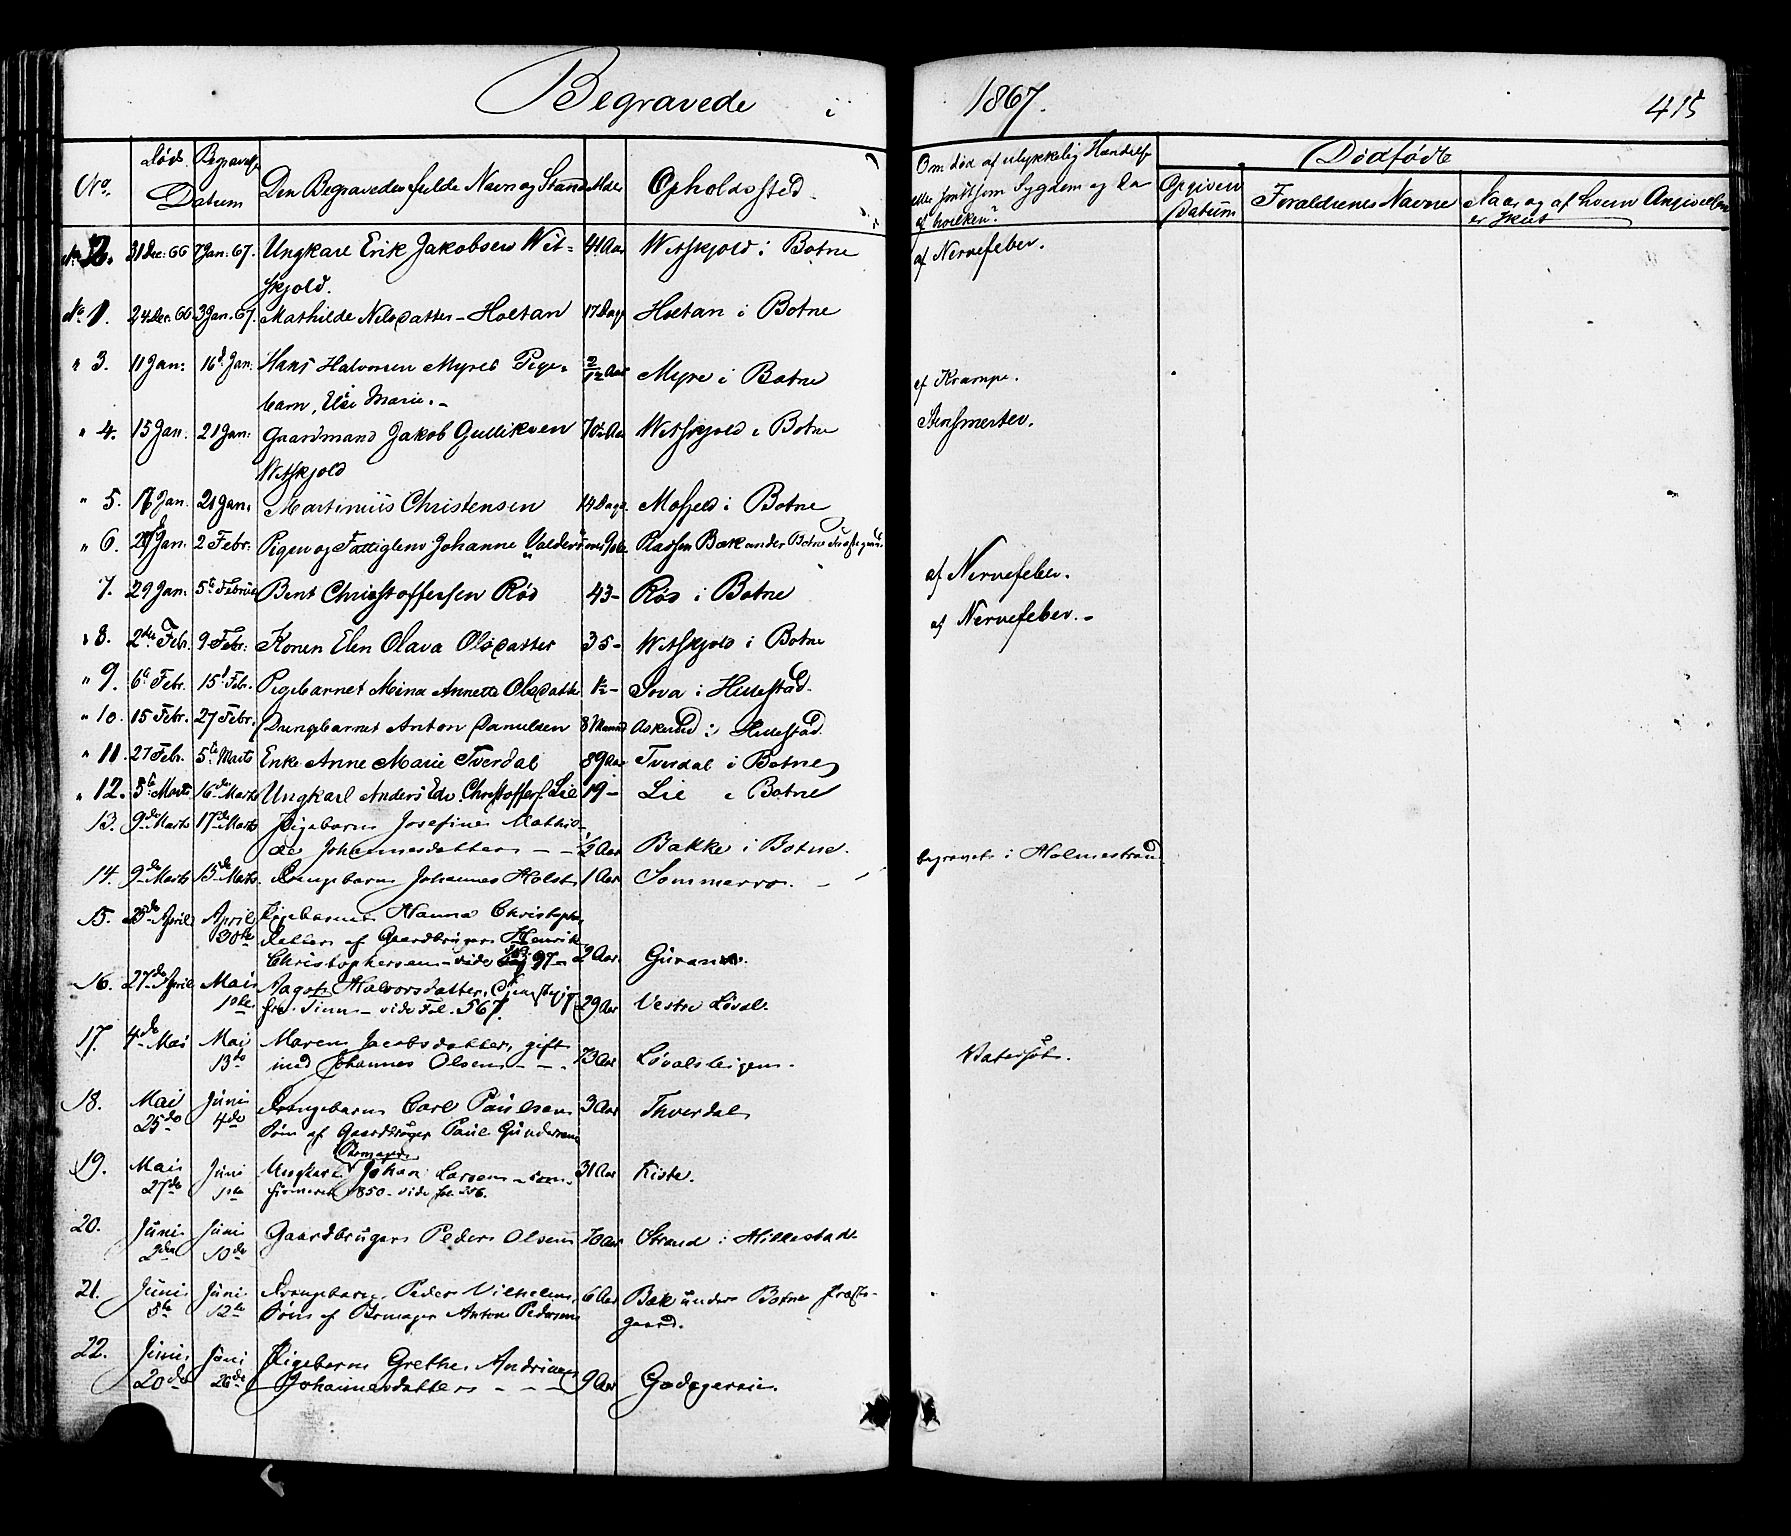 Begravede i 1867. 415
No. Død Begravelse Datum Den Begravedes fulde Navn og Stand Alder Opholdssted. Om død af ulykkelig Hændelse
eller smitsom Sygdom og da
af hvilken? Dødfødte
Opgivers Datum Forældrenes Navne Naar og af hvem Angivelsen
er skeet
No 2. 31 Dec: 66 7 Jan: 67. Ungkarl Erik Jakobsen Wit= 41 Aar Witskjold i Botne af Nervefeber.
skjold.
No 1. 24 Dec. 66 3 Jan. 67. Mathilde Nilsdatter - Holtan 17 Dage Holtan i Botne
" 3. 11 Jan: 16d Jan. Hans Halvorsen Myres Pige- 2/12 Aar Myre i Botne af Krampe.
barn, Else Marie. -
" 4. 15 Jan. 21 Jan: Gaardmand Jakob Gulliksen 70 Aar Witskjold i Botne Stensmerter.
Witskjold
" 5. 17 Jan. 21 Jan. Martinius Christensen 14 Dage Mofjeld i Botne
" 6. Jan. 2 Febr. Pigen og Fattiglem Johanne Pladsen Bæk under Botne Præstegaard
7. 29 Jan. 5te Februar Bent Christoffersen Rød 43 - Rød i Botne af Nervefeber.
" 8. 2den Febr. 9 Febr: Konen Elen Olava Olsdatter 35 - Witskjold i Botne af Nervefeber. -
" 9. 6te Febr. 15d Feb. Pigebarnet Mina Annette Olsdatter 1/2 - Sova i Hillestad.
" 10. 15 Febr. 27 Febr. Drengebarnet Anton Danielsen 8 Maaned Askerud i Hillestad.
" 11. 27 Febr. 5te Marts Enke Anne Marie Tverdal 89 Aar Tverdal i Botne
" 12. 5te Marts 16de Marts Ungkarl Anders Edv. Christoffers. Lie 19 - Lie i Botne
13. 9de Marts 17de Marts Pigebarn Josefine Mathil-
de Johannesdatter - - 1/2 Aar Bakke i Botne. begravet i Holmestrand.
14. 9de Marts 15de Marts Drengebarn Johannes Holst 1 Aar Sommerro. -
15. April April Pigebarnet Hanna Christophers
30te Datter af Gaardbruger Henrik
Christophersen - vide 97 - 2 Aar Guran.
16. 27de April Mai Aagot Halvorsdatter, Tjenestepige
fra Tinn - vide Fol. 567. 29 Aar Vestre Løval.
17. 4de Mai Mai Maren Jacobsdatter, gift
13de med Johannes Olsen - - 73 Aar Løvalsteigen. Vatersot.
18. Mai Juni Drengebarn Carl Paulsen 3 Aar Thverdal
25de 4de Søn af Gaardbruger Paul Gundersen
19. Mai Juni Ungkarl Johan Larsen - con- 31 Aar Kiste.
27de firmeret 1850 - vide fol.
20. Juni Juni Gaardbruger Peder Olsen 70 Aar Strand i Hillestad
2den 10de
21. Juni Juni Drengebarn Peder Vilhelm, 6 Aar Bæk under Botne Præste-
5te 12te Søn af Anton Pedersen gaard.
22. Juni Juni Pigebarn Grethe Andrine
20de 26de Johannesdatter - - - 9 Aar Godegersrie.